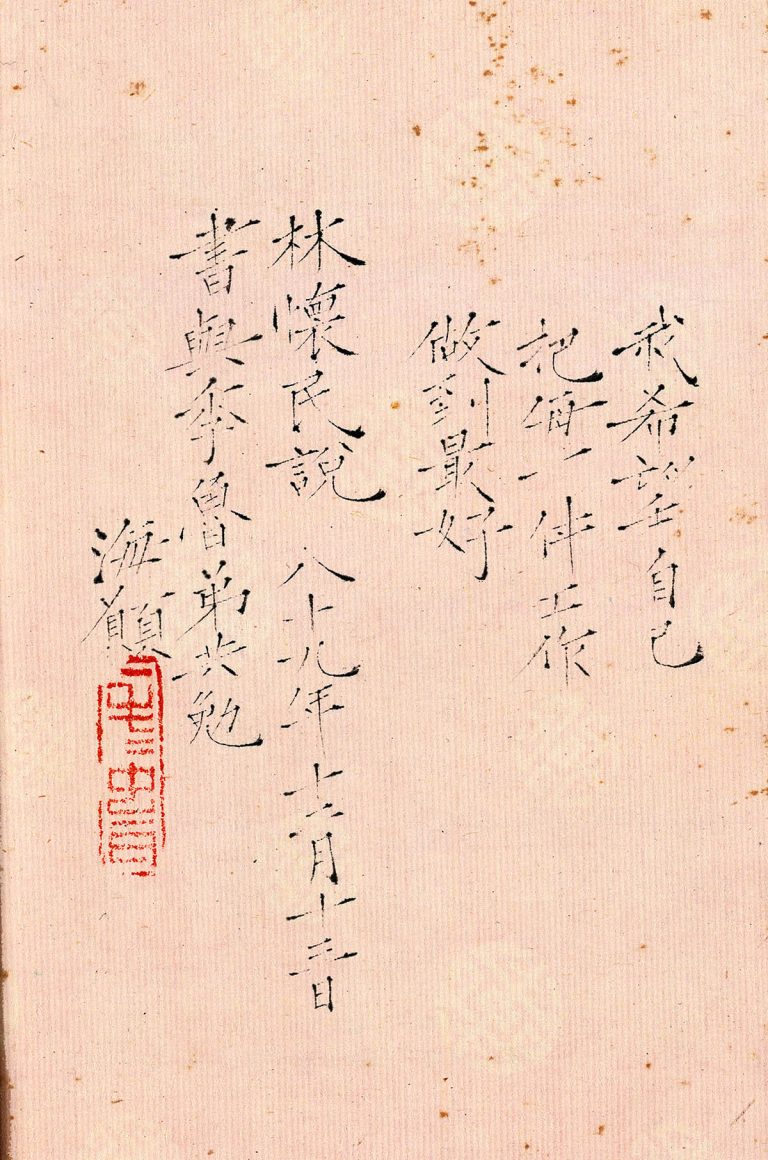 我希望自己
把每一件工作
做到最好
林懷民說 八十九年十二月十三日
書與季魯弟共勉
海